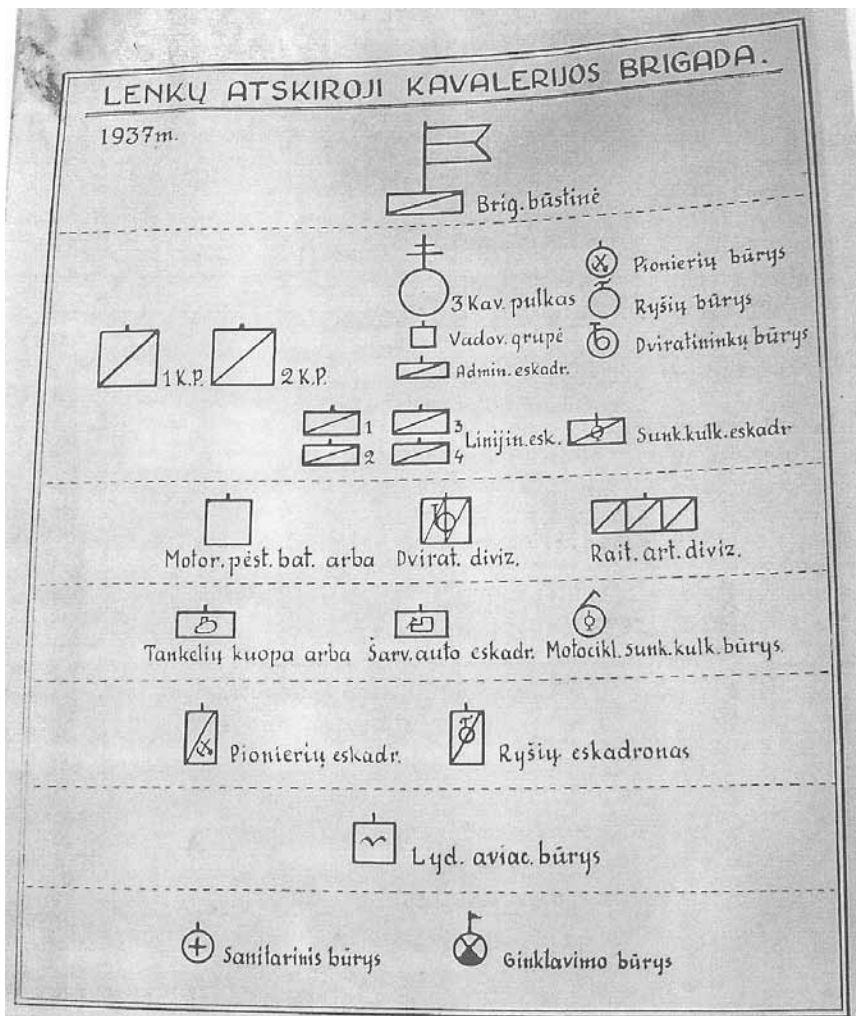 LENKŲ ATSKIROJI KAVALERIJOS BRIGADA.
1937m.
Brig. būstinė
Pionierių būrys
3 Kav. pulkas
Ryšių būrys
Vadov. grupė
Dviratininkų būrys
1 K.P.
2 K.P.
Admin. eskadr.
1
3
Linijin. esk.
Sunk. kulk. eskadr
2
4
Motor. pėst. bat. arba
Dvirat. diviz.
Rait. art. diviz.
Tankelių kuopa arba
Šarv. auto eskadr.
Motocikl. sunk. kulk. būrys.
Pionierių eskadr.
Ryšių eskadronas
Lyd. aviac. būrys
Sanitarinis būrys
Ginklavimo būrys